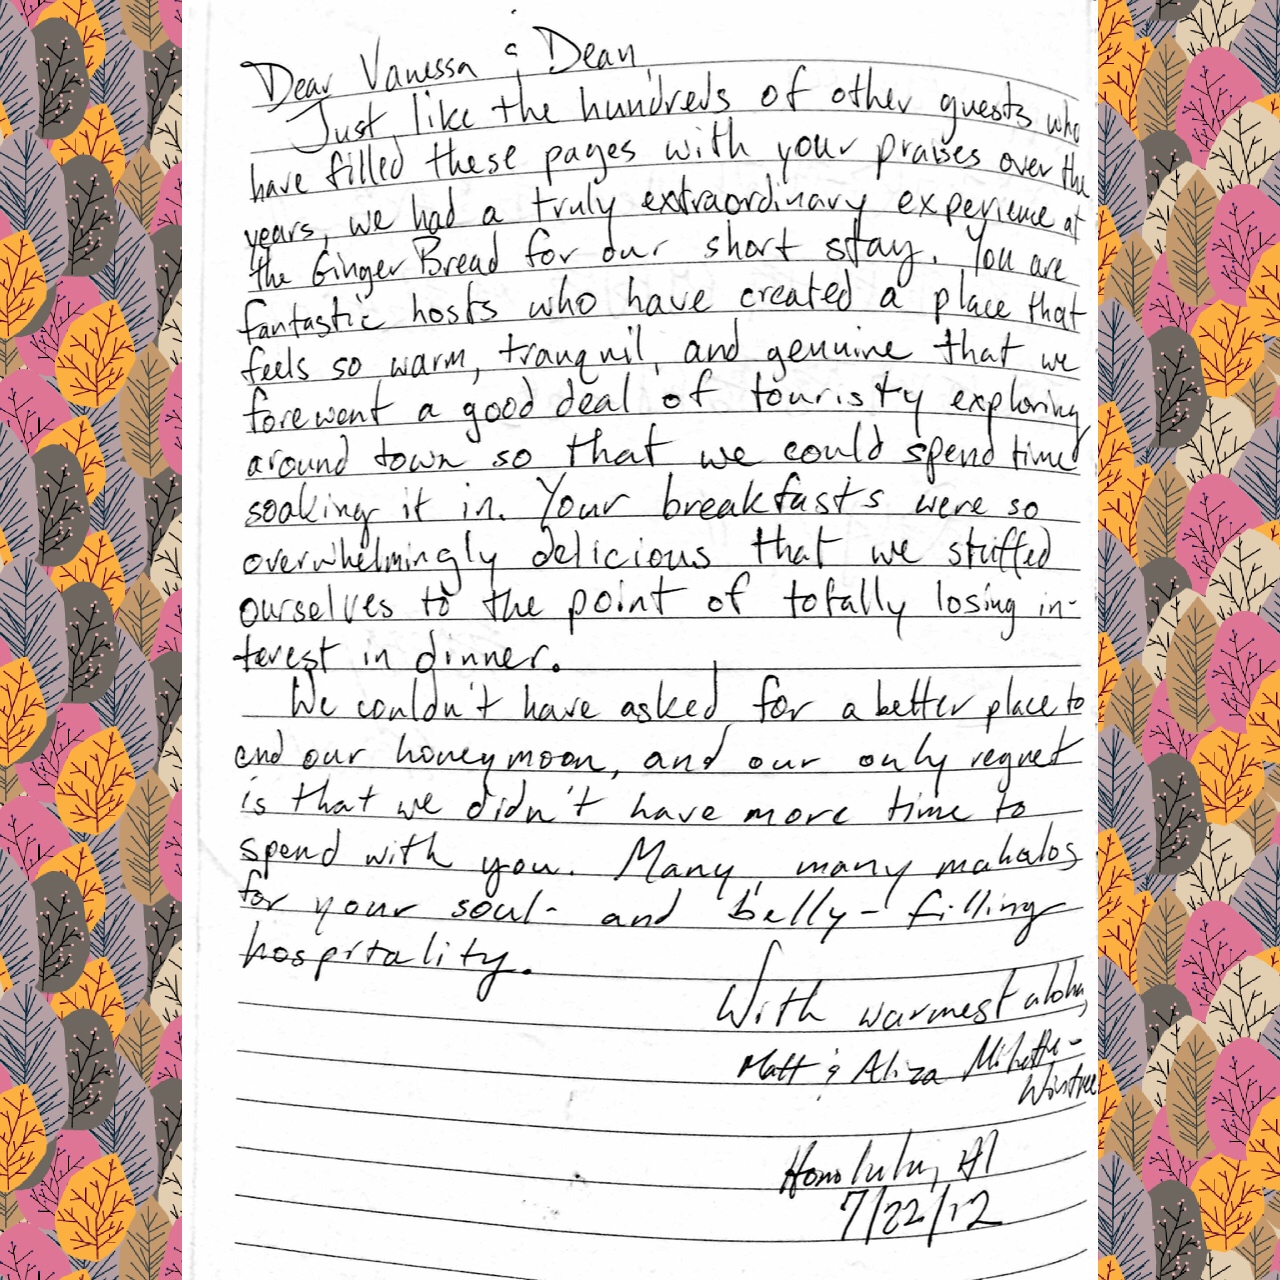 Dear Vanessa & Dean,
Just like the hundreds of other guests who
have filled these pages with your praises over the
years, we had a truly extraordinary experience at
the Ginger Bread for our short stay. You are
fantastic hosts who have created a place that
feels so warm, tranquil, and genuine that we
forewent a good deal of touristy exploring
around town so that we could spend time
soaking it in. Your breakfasts were so
overwhelmingly delicious that we stuffed
ourselves to the point of totally losing in-
terest in dinner.
We couldn't have asked for a better place to
end our honeymoon, and our only regret
is that we didn't have more time to
spend with you. Many, many mahalos
for your soul- and belly-filling
hospitality.
With warmest aloha,
Matt & Aliza
Honolulu, HI
7/22/12